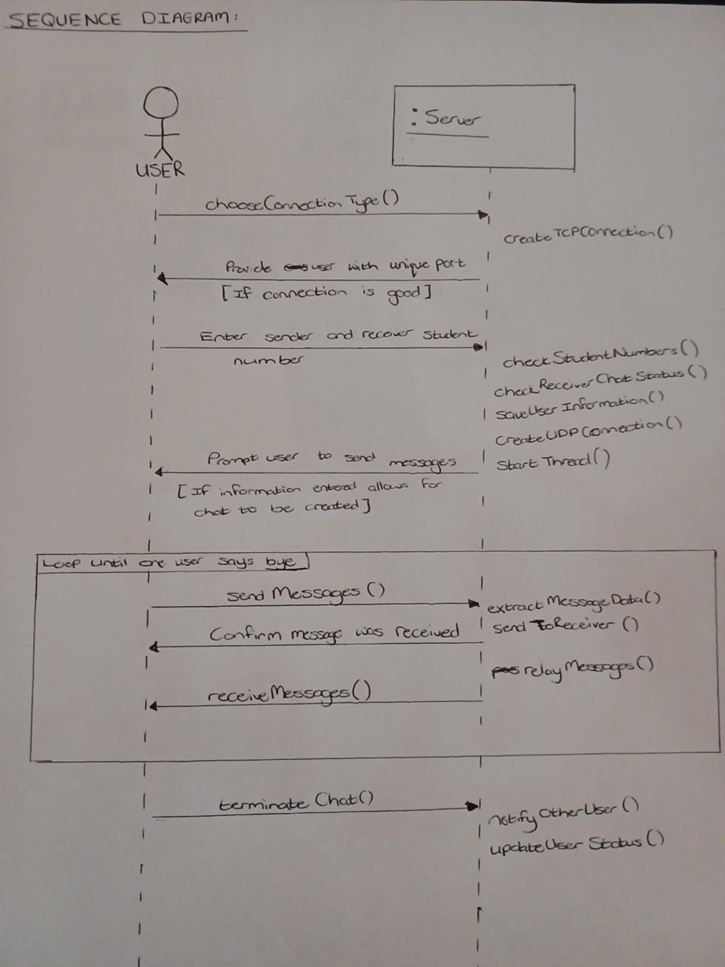 SEQUENCE DIAGRAM:
: Server
USER
chooseConnectionType()
createTCPConnection()
Provide user with unique port
[If connection is good]
Enter sender and reciever student
number
checkStudentNumbers()
checkReceiverChatStatus()
saveUserInformation()
createUDPConnection()
Prompt user to send messages
startThread()
[If information entered allows for
chat to be created]
Loop until one user says bye
sendMessages()
extractMessageData()
Confirm message was received
sendToReceiver()
relayMessages()
receiveMessages()
terminateChat()
notifyOtherUser()
updateUserStatus()